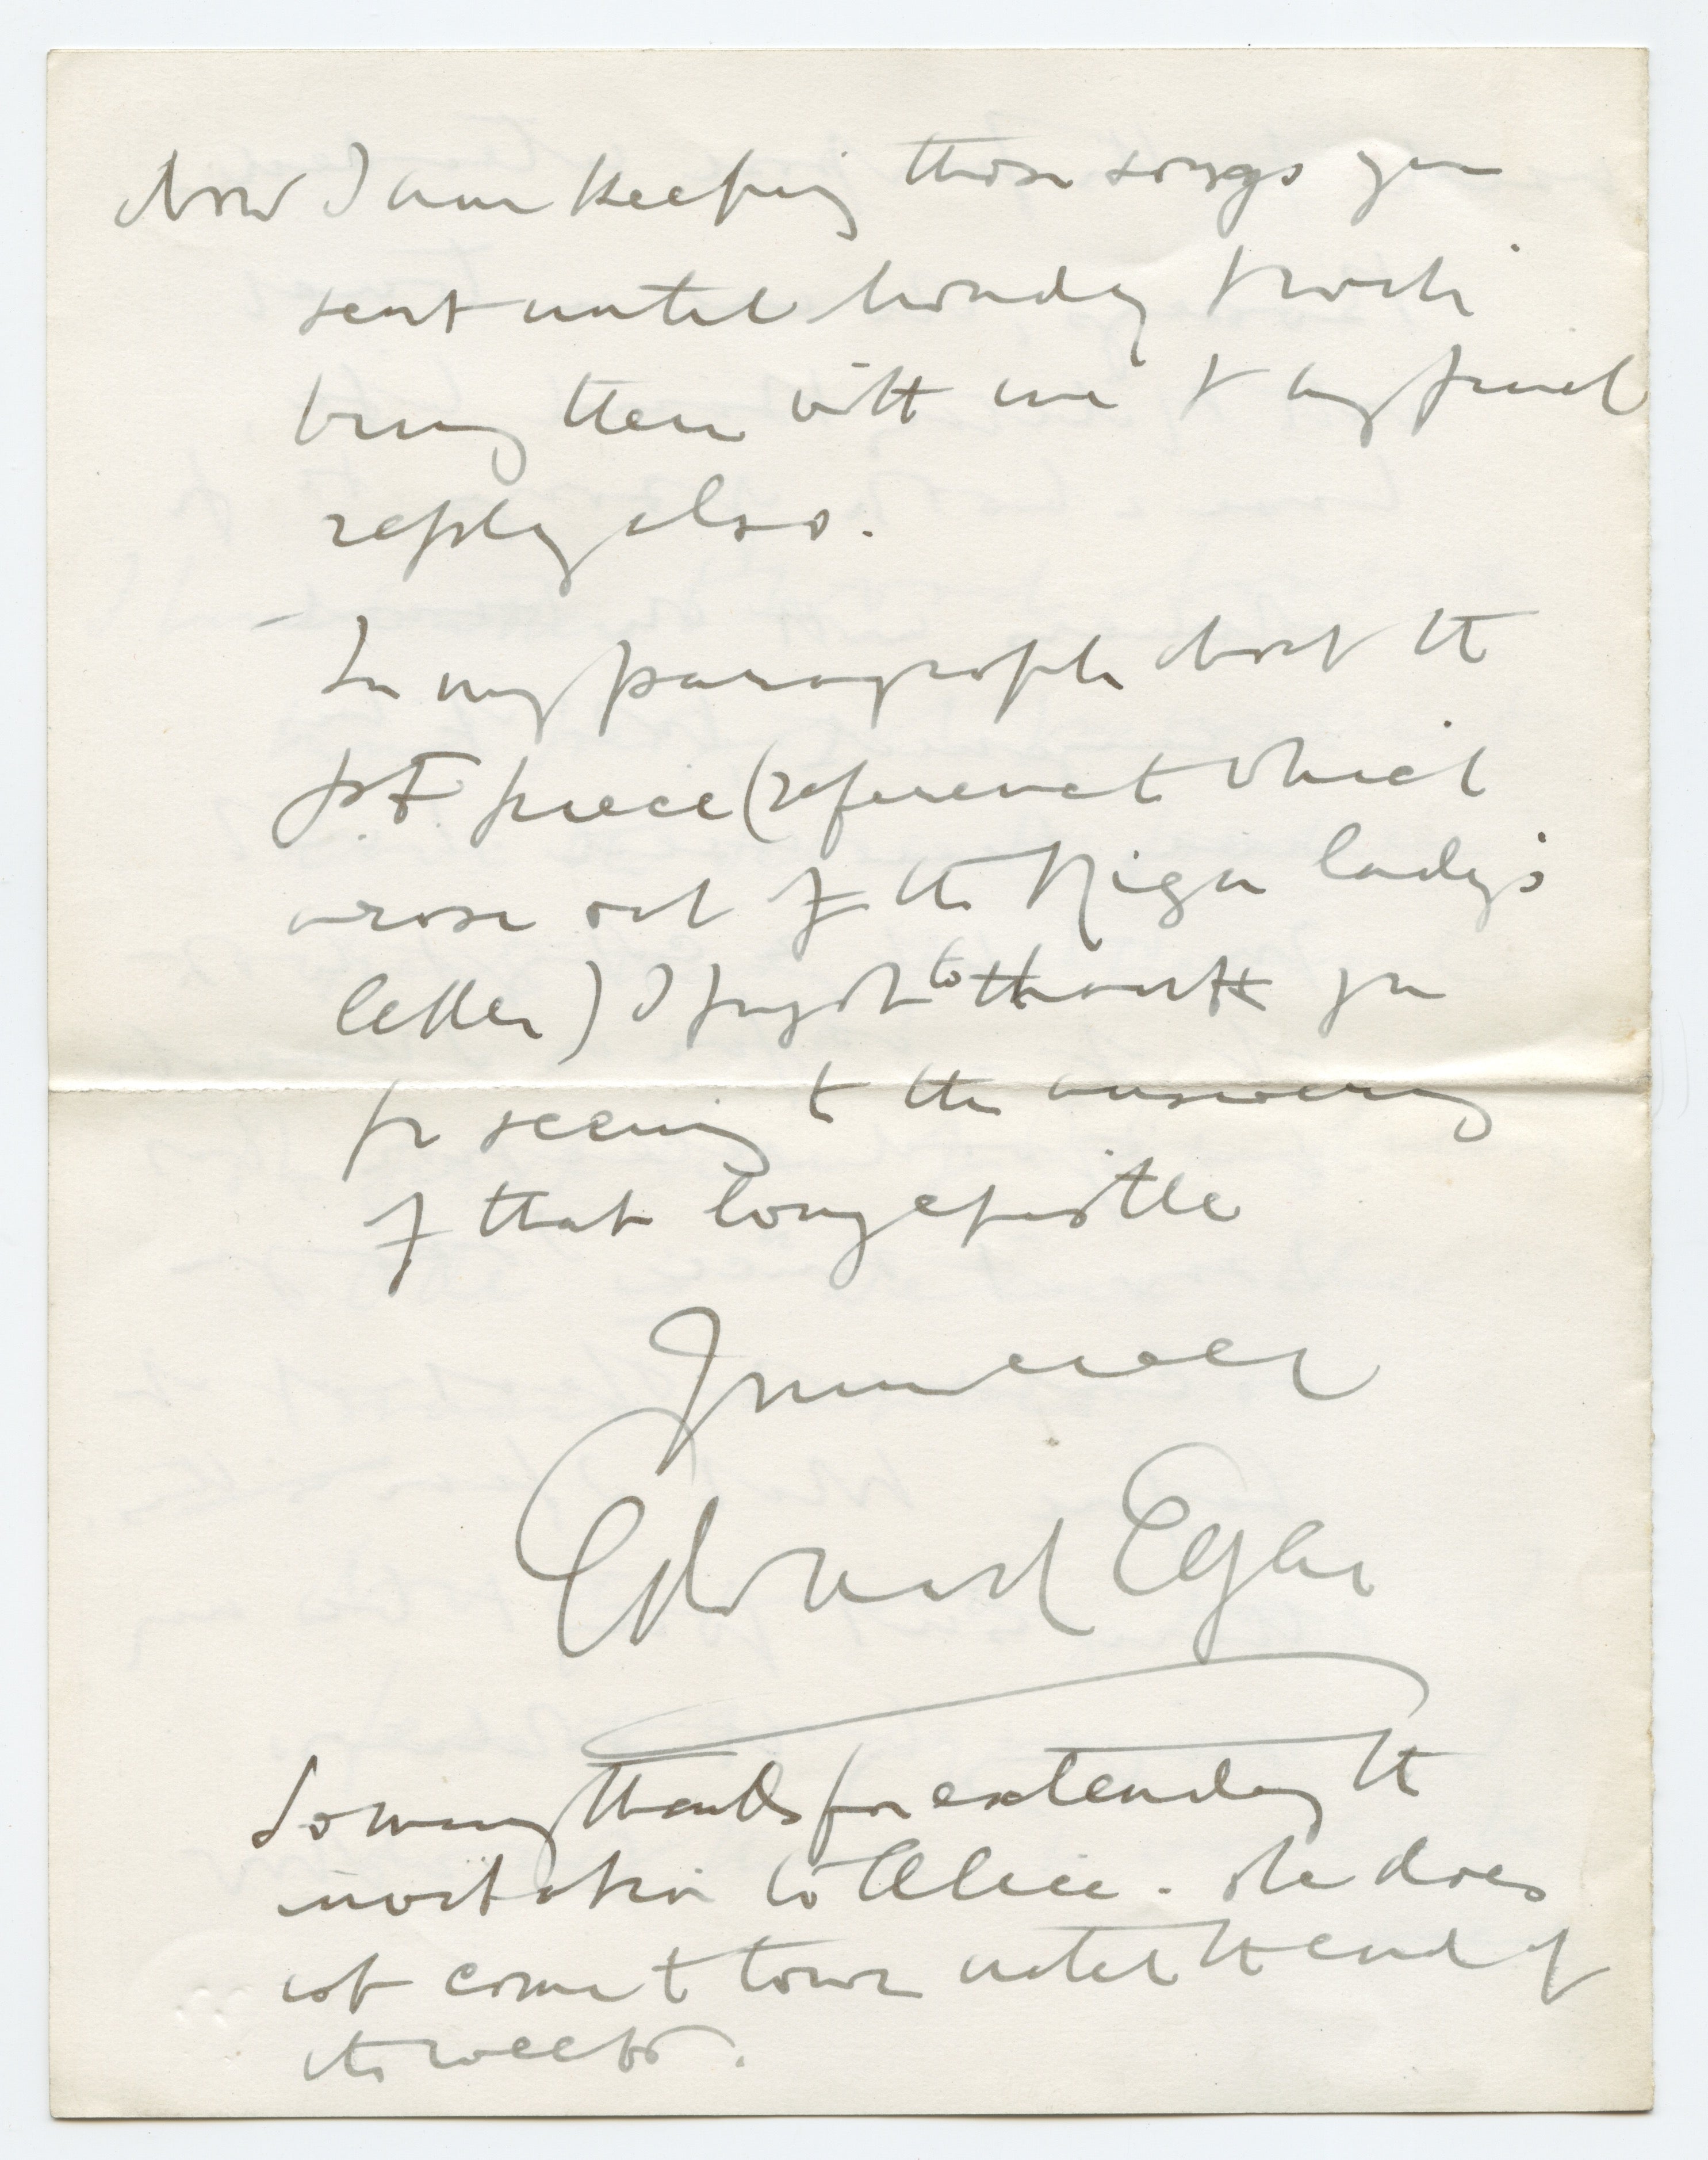 Now I am keeping those songs you
sent until Monday & will
bring them with me & my final
reply also.
In my paragraph about the
p.f. piece (reference to which
arose out of the Riga lady's
letter) I forgot to thank you
for seeing to the answering
of that long epistle
Yours ever
Edward Elgar
So many thanks for extending the
invitation to Alice. She does
not come to town until the end of
the week.